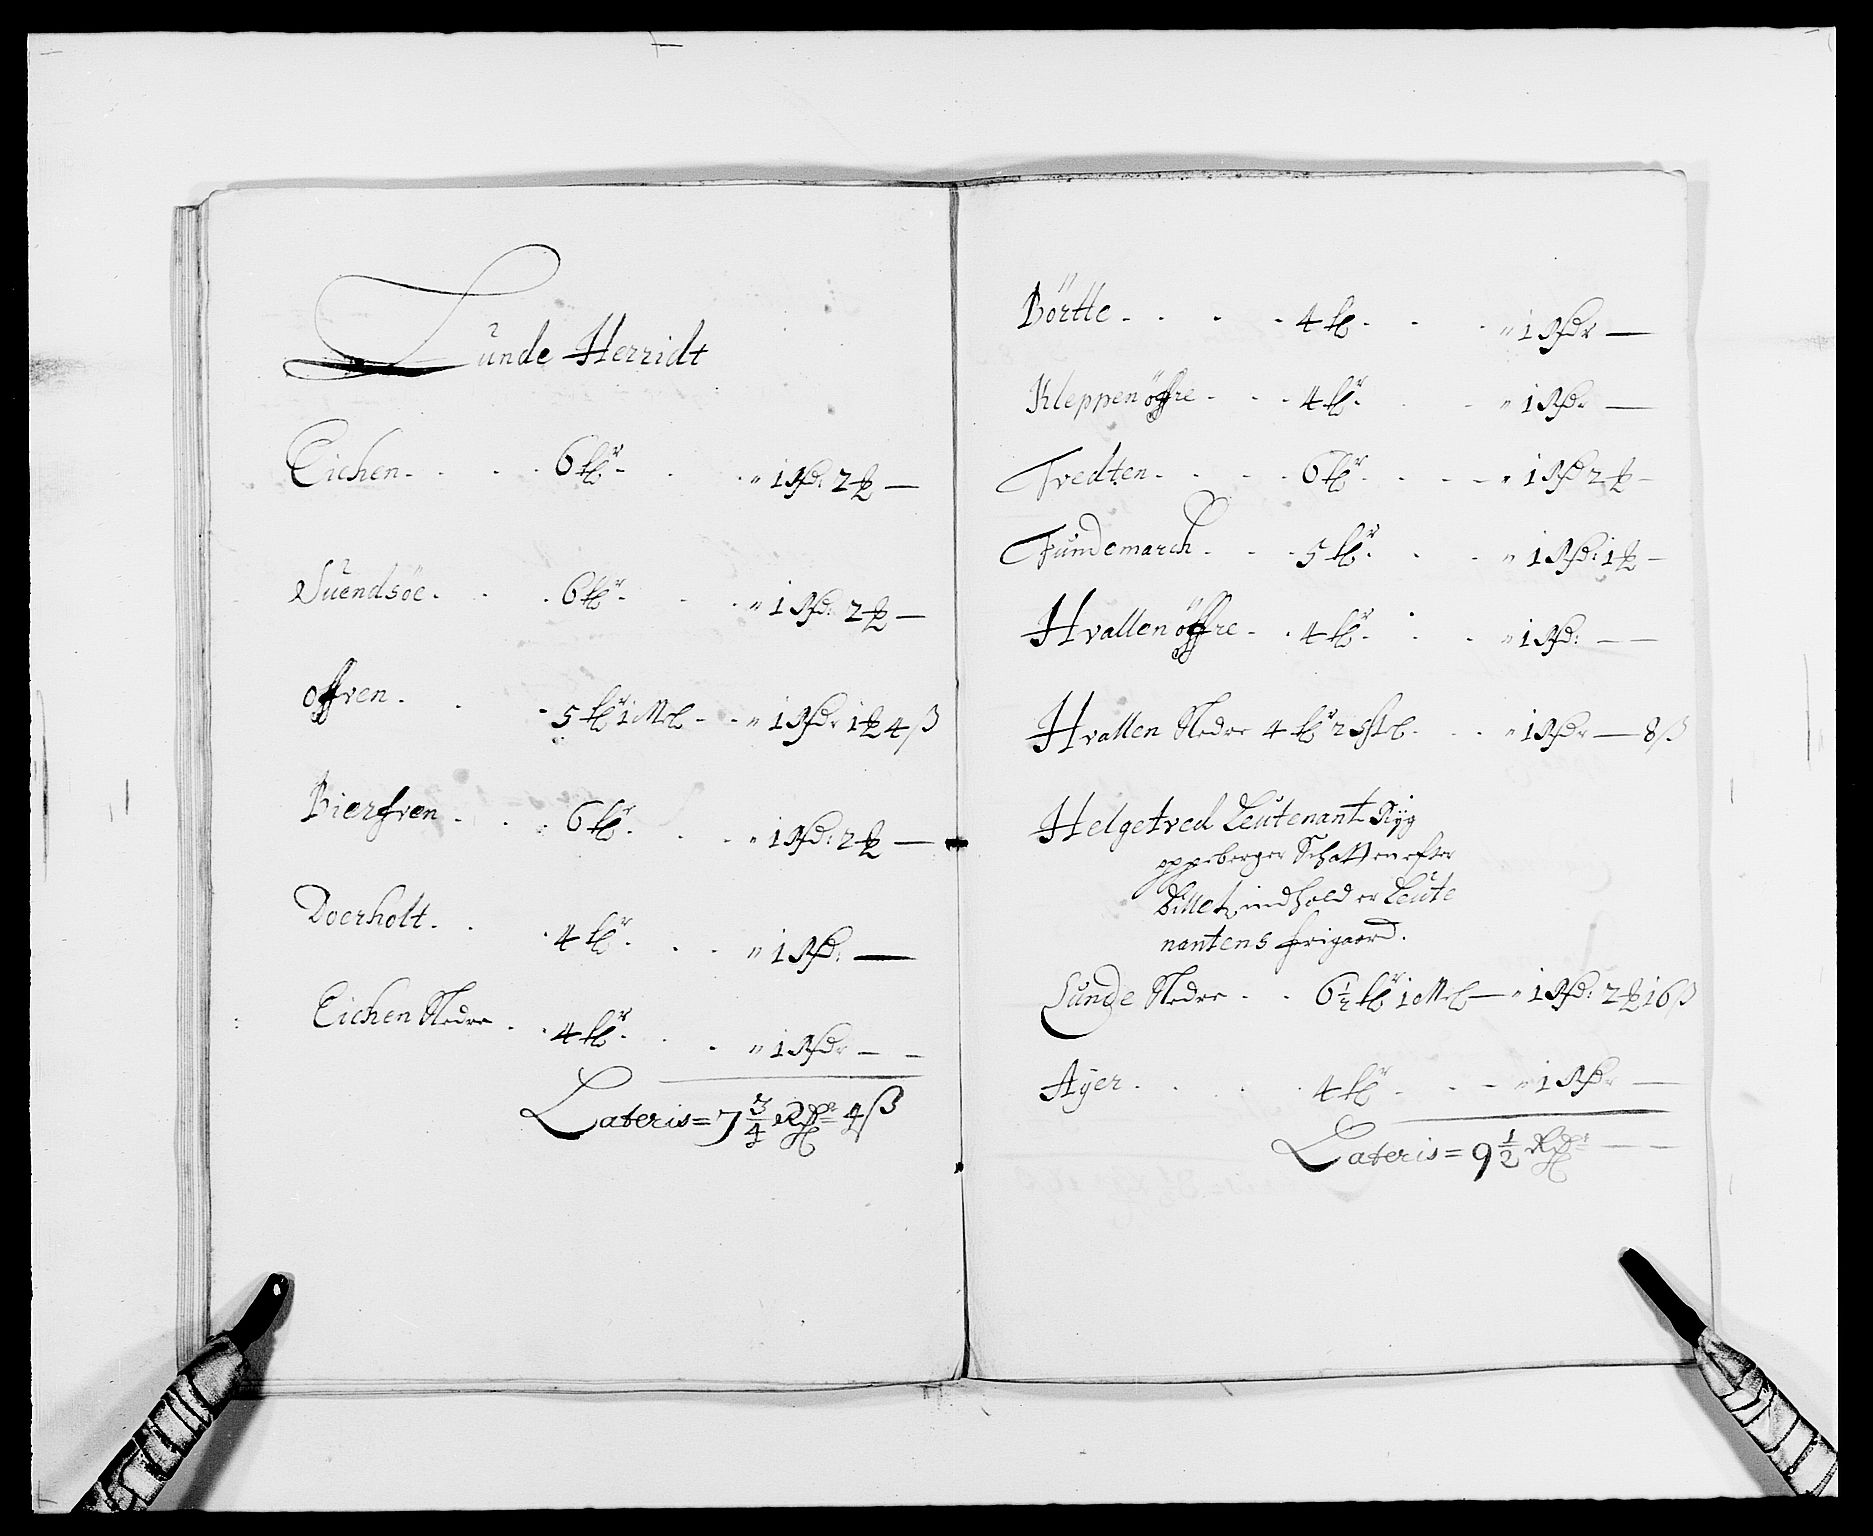 Lunde Herridt
Eichen - - - 6 hr - - „ 1 Rdr 2 ℔ —
Suendsöe - - 6 hr - - „ 1 Rd: 2 ℔ —
offren - - 5 hr 1 Mel - - „ 1 Rdr 1 ℔ 4 ß
Bierfven - - 6 hr - - „ 1 Rd: 2 ℔ —
Doerholt - - 4 hr - - „ 1 Rd: —
Eichen Nedre - 4 hr - - „ 1 Rdr — —
Lateris = 7 3/4 Rdr 4 ß
Börtte - - - 4 h - - „ 1 Rdr —
Kleppen öffre - - 4 hr - - „ 1 Rdr —
Tvedten - - - 6 hr - - „ 1 Rd 2 ℔ —
Tundemarch - - 5 hr - - „ 1 Rd: 1 ℔ —
Hvallen öffre - - 4 hr - - „ 1 Rd: — —
Hvallen Nedre 4 hr 2 - - „ 1 Rdr — 8 ß
Helgetved Leutenant Ryg
oppeberger Schatten efter
billet, indhold er Leute
nantens frigaard.
Lunde Nedre - - 6 1/2 hr 1 Mel — „ 1 Rd: 2 ℔ 16 ß
Ayer - - - 4 hr - - „ 1 Rdr —
Lateris = 9 1/2 Rdr — —